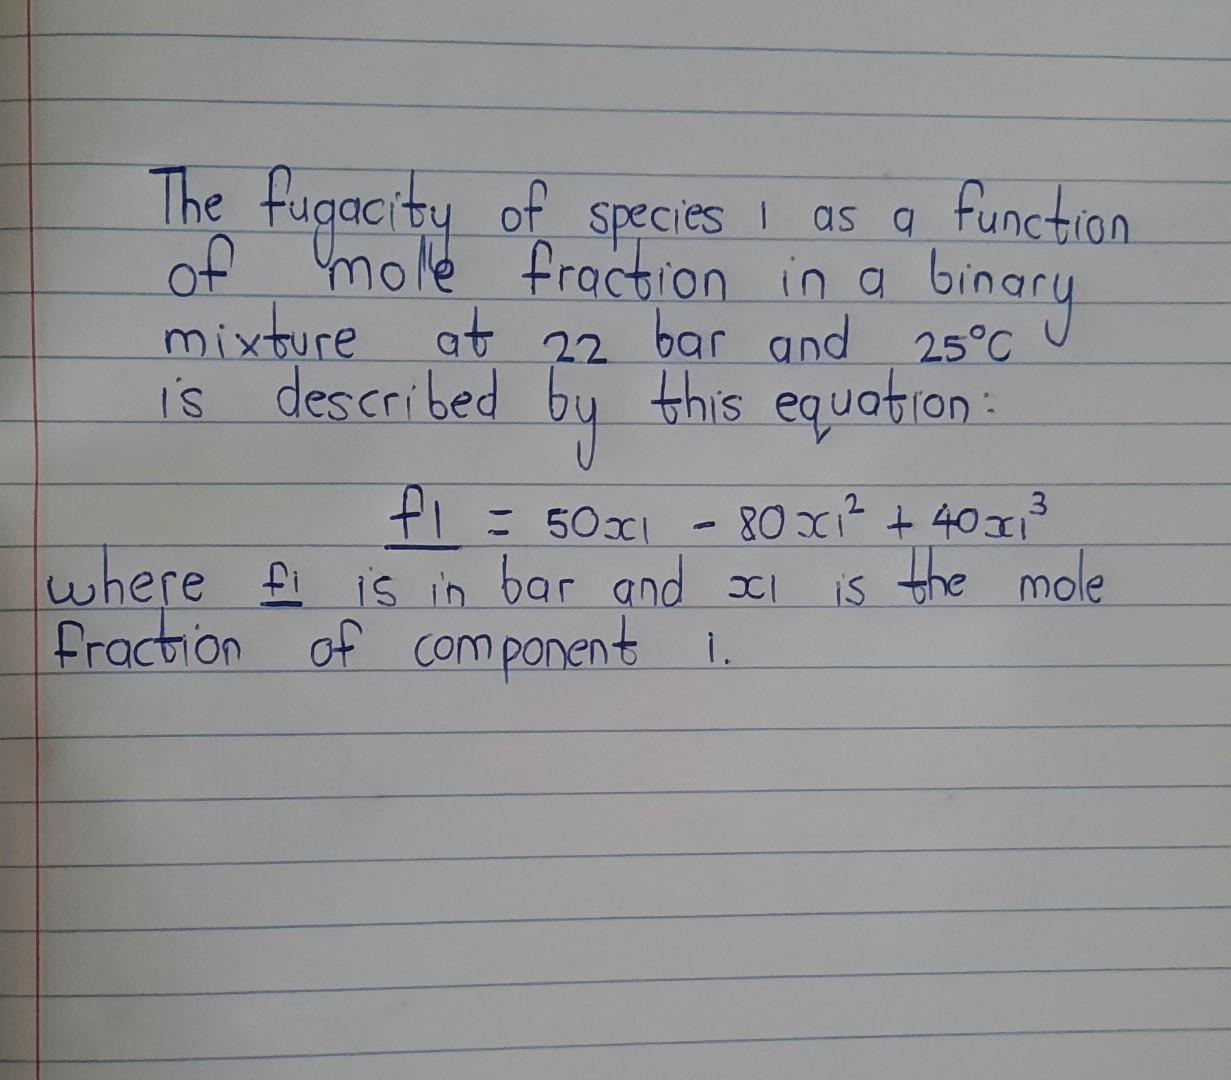 The fugacity of species 1 as a function
of mole fraction in a binary
mixture at 22 bar and 25°C
is described by this equation:
f1 = 50x1 - 80x1² + 40x1³
where f1 is in bar and x1 is the mole
fraction of component 1.